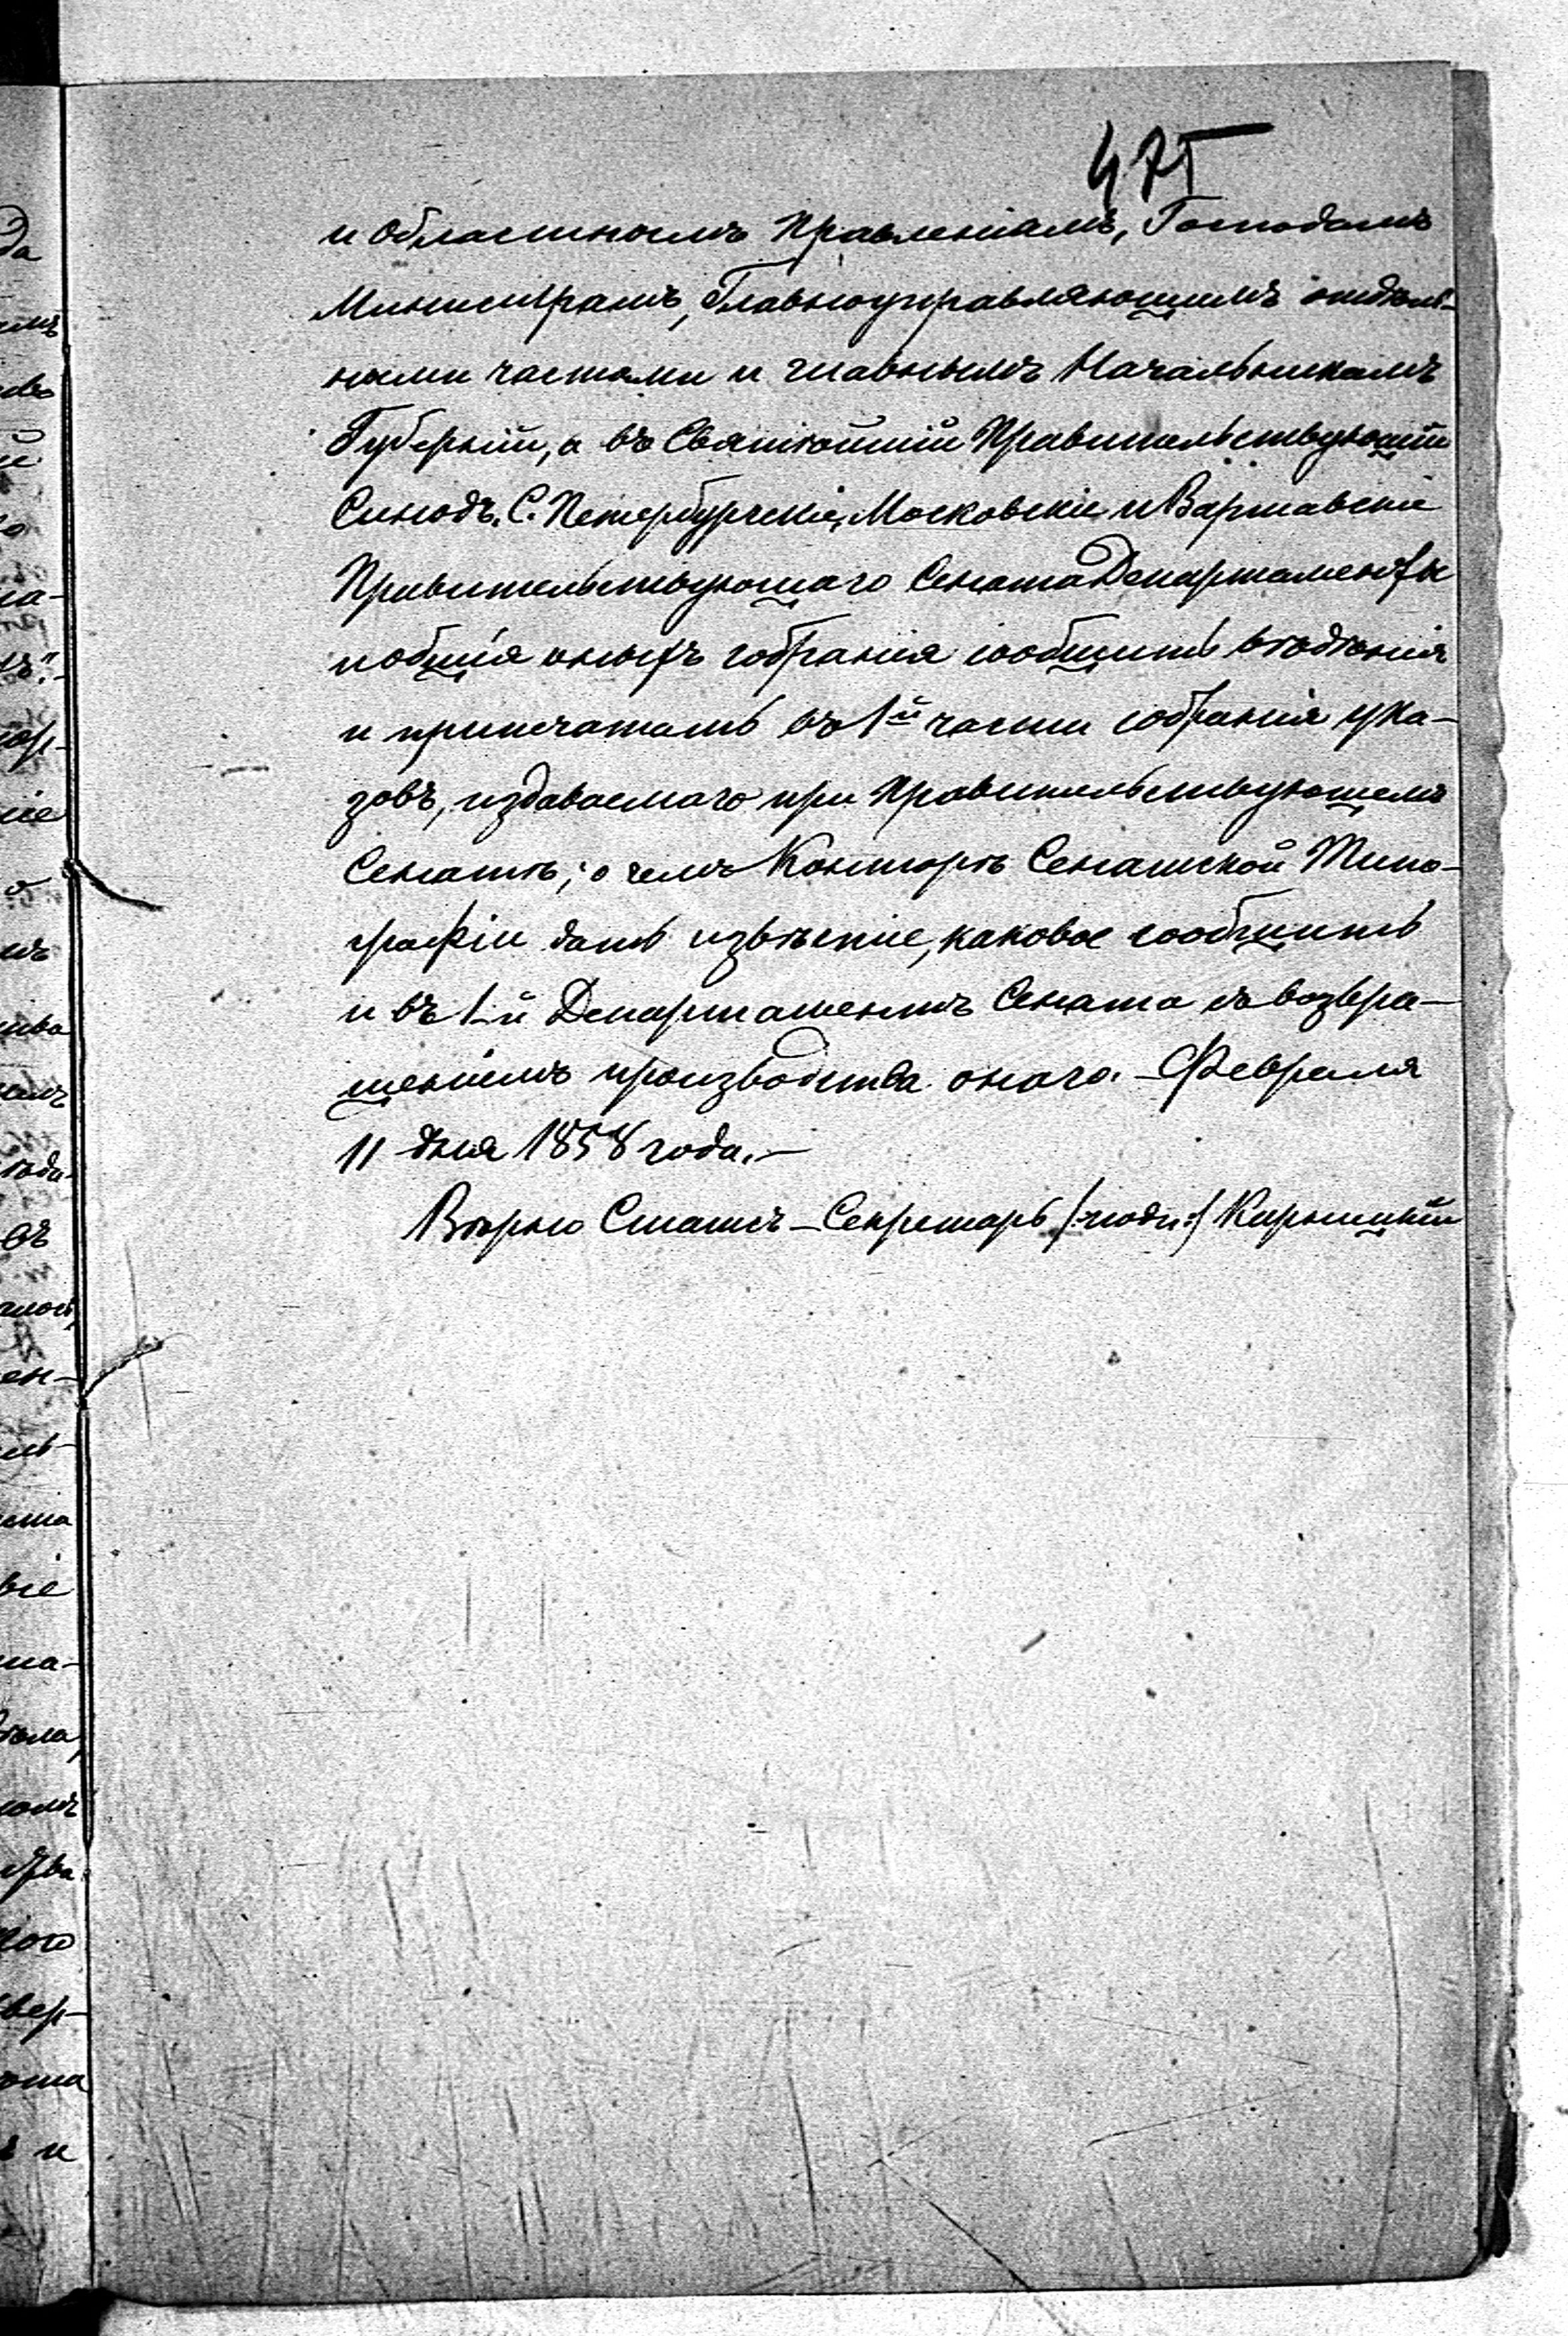 475
и Областнымъ Правленіямъ, Господамъ
Министрамъ, Главноуправляющимъ отдѣль-
ными частями и главнымъ Начальникамъ
Губерній, а въ Святѣйшій Правительствующій
Синодъ, С. Петербургскіе, Московскіе и Варшавскіе
Правительствующаго Сената Департаменты
и общія оныхъ собранія сообщить вѣдѣнія
и припечатать въ 1й части собранія ука-
зовъ, издаваемаго при Правительствующемъ
Сенатѣ; о чемъ Конторѣ Сенатской Типо-
графіи дать извѣстіе, каковое сообщить
и въ 1-й Департаментъ Сената съ возвра-
щеніемъ производства онаго. Февраля
11 дня 1858 года.-
Вѣрно Статсъ-Секретарь /:подп:/